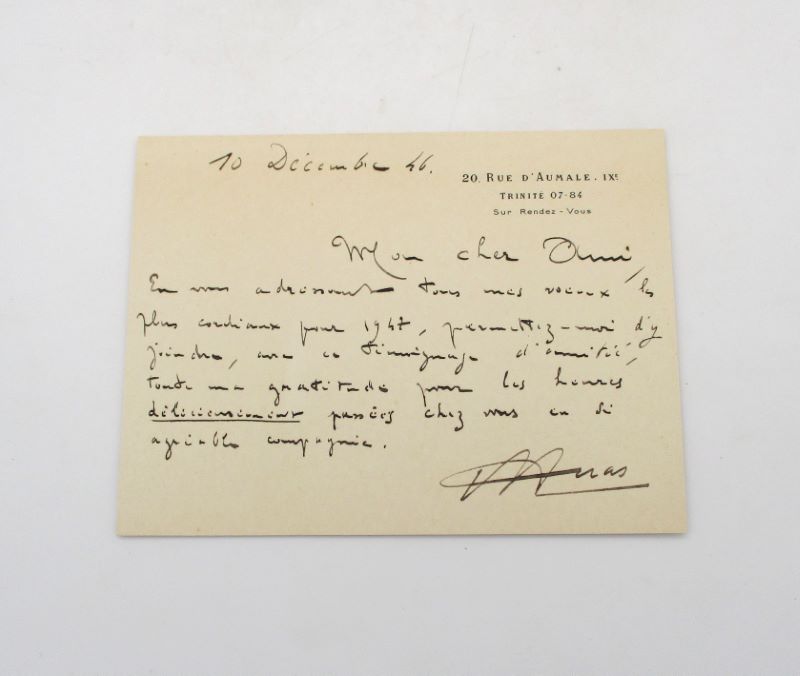 10 Décembre 46.
20, RUE D'AUMALE. IXE
TRINITÉ 07-84
Sur Rendez-Vous
Mon cher Ami,
En vous adressant tous mes voeux les
plus cordiaux pour 1947, permettez-moi d'y
joindre, avec ce témoignage d'amitié,
toute ma gratitude pour les heures
délicieusement passées chez vous en si
agréable compagnie.